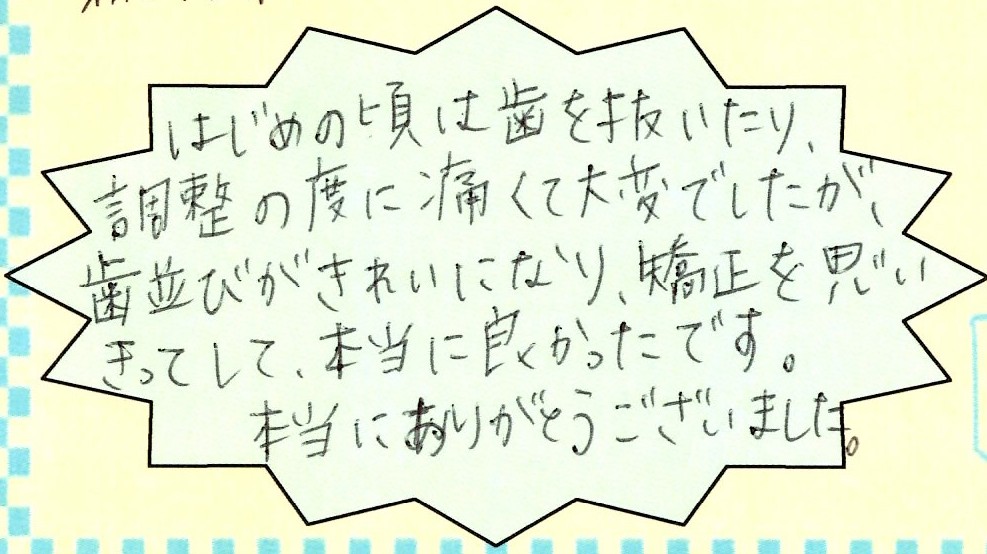 はじめの頃は歯を抜いたり、
調整の度に痛くて大変でしたが、
歯並びがきれいになり、矯正を思い
きってして、本当に良かったです。
本当にありがとうございました。